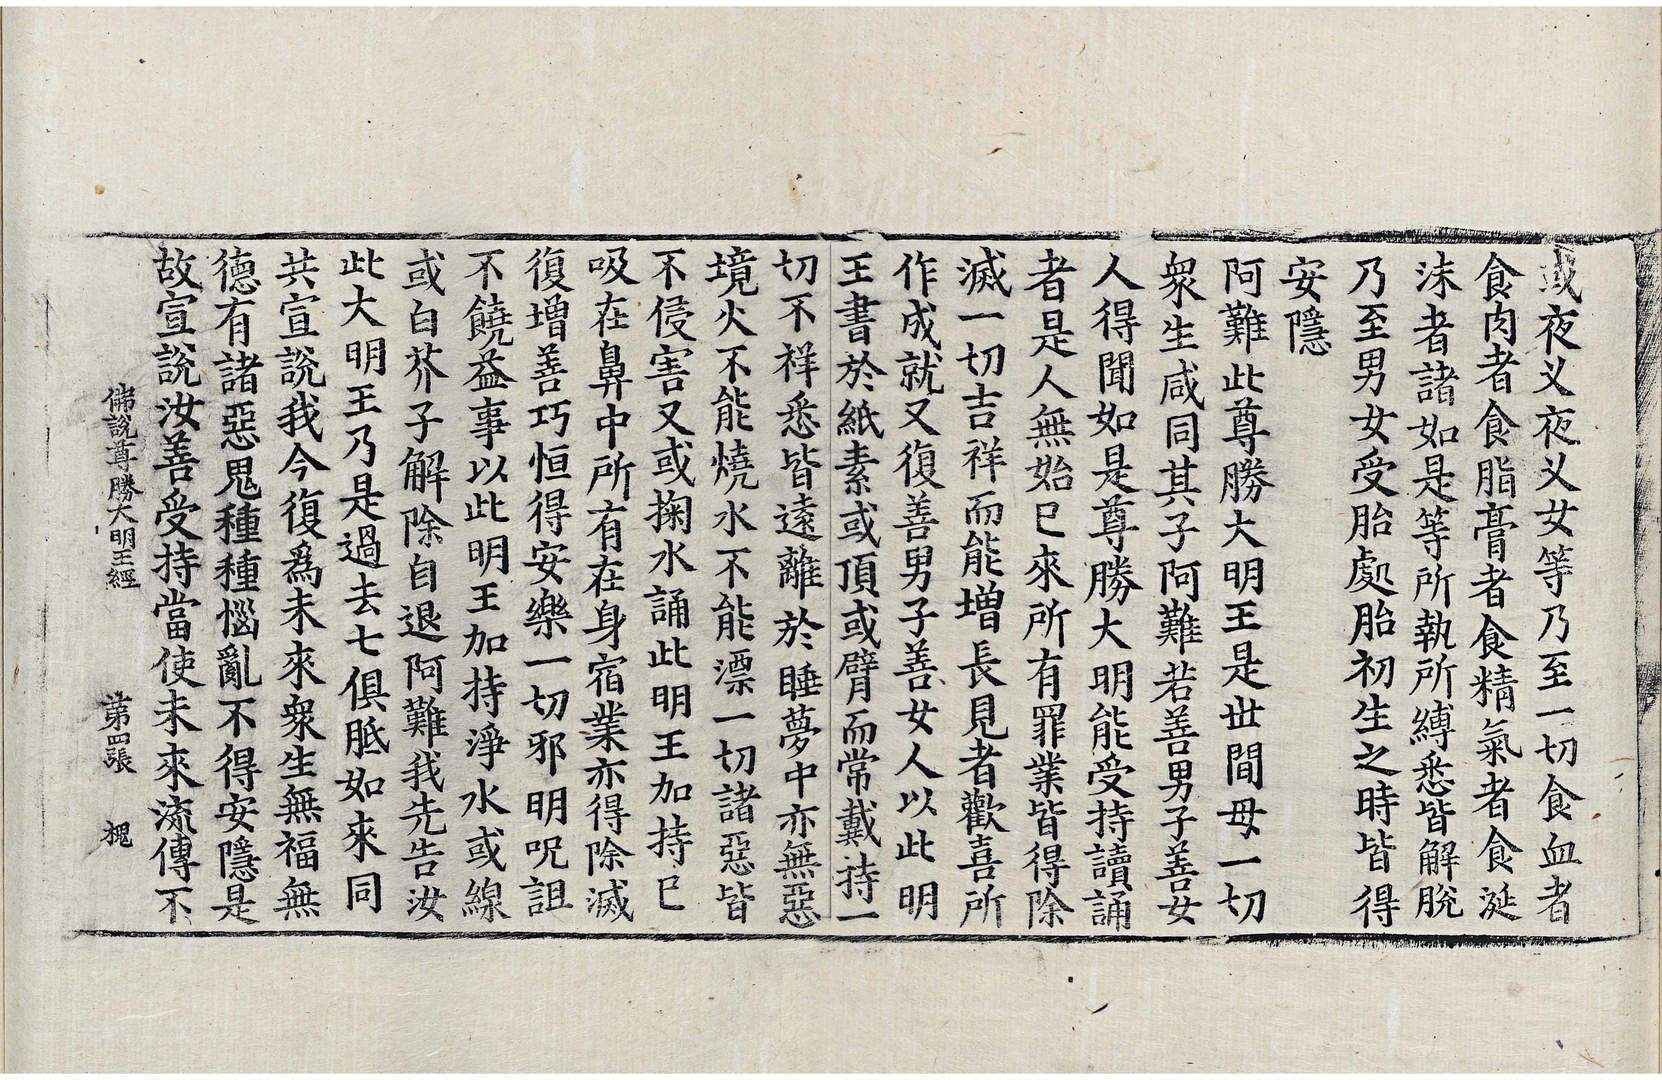 或夜叉夜叉女等乃至一切食血者
食肉者食脂膏者食精氣者食涎
沫者諸如是等所執所縛悉皆解脫
乃至男女受胎處胎初生之時皆得
安隱
阿難此尊勝大明王是世間母一切
衆生咸同其子阿難若善男子善女
人得聞如是尊勝大明能受持讀誦
者是人無始已來所有罪業皆得除
滅一切吉祥而能增長見者歡喜所
作成就又復善男子善女人以此明
王書於紙素或頂或臂而常戴持一
切不祥悉皆遠離於睡夢中亦無惡
境火不能燒水不能漂一切諸惡皆
不侵害又或掬水誦此明王加持已
吸在鼻中所有在身宿業亦得除滅
復增善巧恒得安樂一切邪明呪詛
不饒益事以此明王加持淨水或線
或白芥子解除自退阿難我先告汝
此大明王乃是過去七俱胝如來同
共宣說我今復爲未來衆生無福無
德有諸惡鬼種種惱亂不得安隱是
故宣說汝善受持當使未來流傳不
佛說尊勝大明王經 第四張 槐